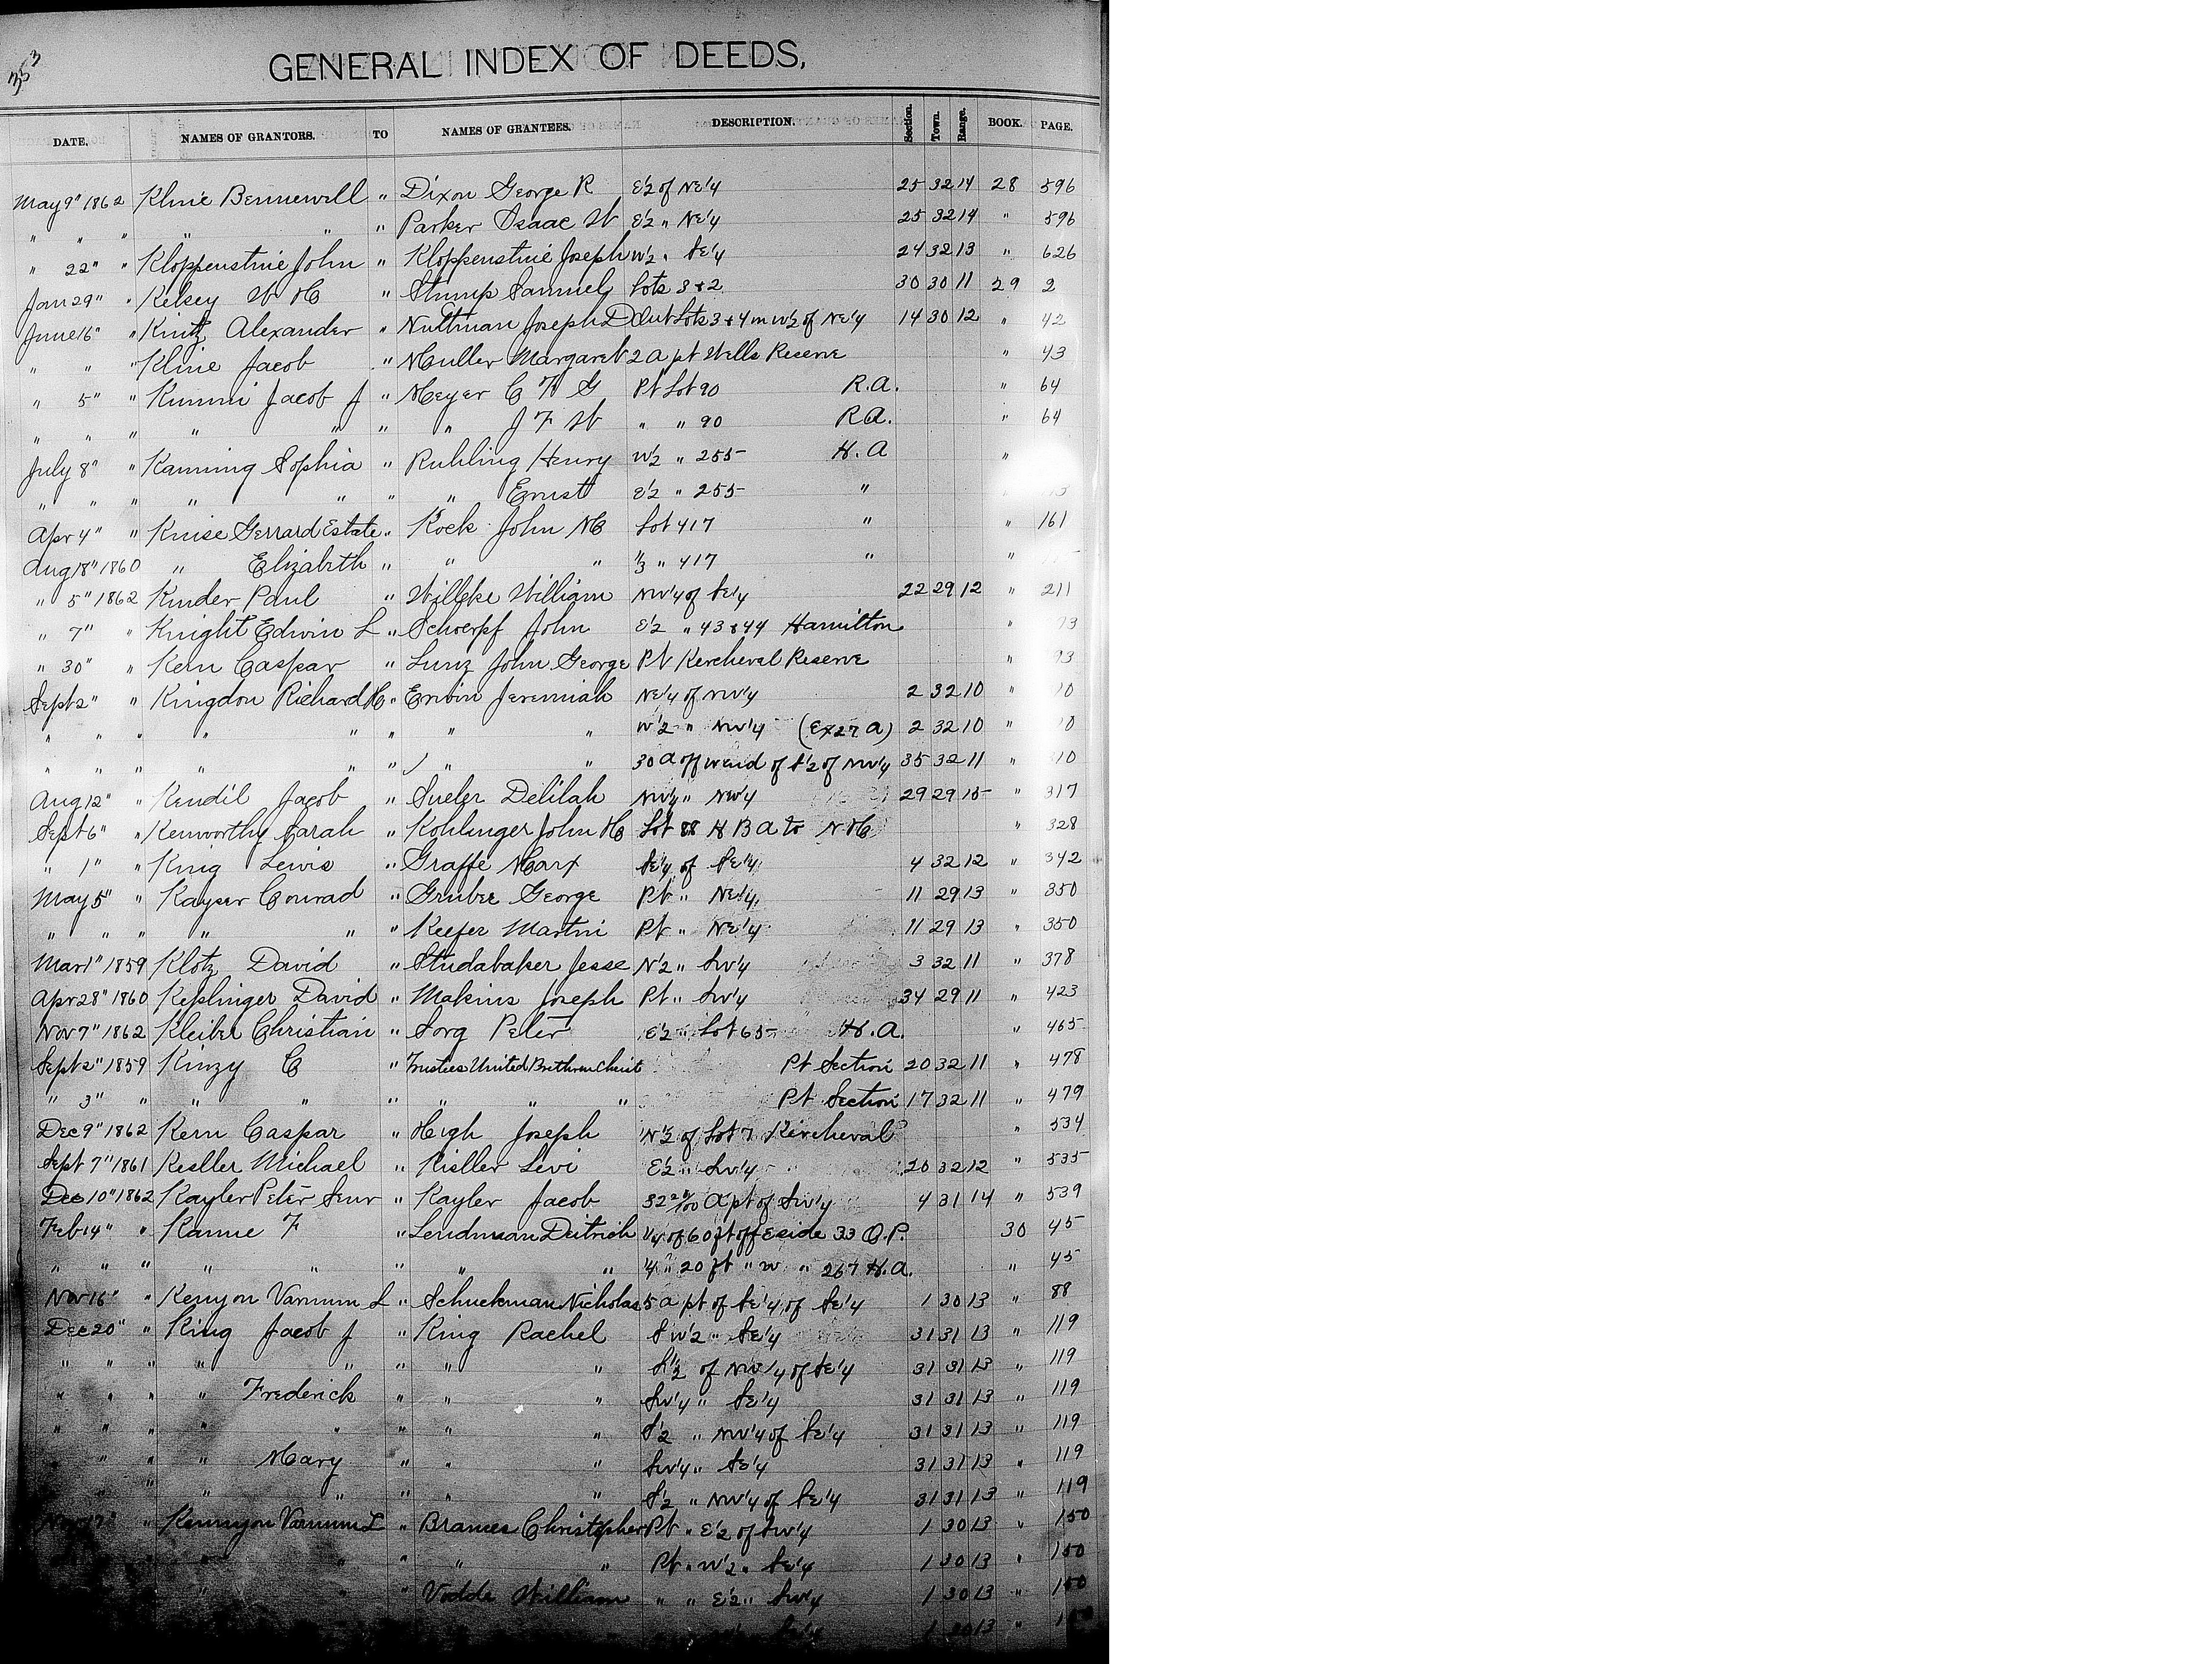 353
GENERAL INDEX OF DEEDS,
DATE. NAMES OF GRANTORS. TO NAMES OF GRANTEES. DESCRIPTION. Section. Town. Range. BOOK. PAGE.
May 9" 1862 Kline Bennewill " Dixon George R E½ of NE¼ 25 32 14 28 596
" " " " " " Parker Isaac W E½ " NE¼ 25 32 14 " 596
" 22" " Kloppenstine John " Kloppenstine Joseph W½ " SE¼ 24 32 13 " 626
Jan 29" " Kelsey W H " Stump Samuel Lots 3 & 2 30 30 11 29 2
June 16" " Kintz Alexander " Nuttman Joseph D Out Lots 3 & 4 in W½ of NE¼ 14 30 12 " 42
" " " Kline Jacob " Muller Margaret 2 a pt Wells Reserve " 43
" 5" " Kimmi Jacob J " Meyer C F G Pt Lot 90 R.A. " 64
" " " " " " " J F W " " 90 R.A. " 64
July 8" " Kanning Sophia " Ruhling Henry W½ " 255 H.A "
" " " " " " " Ernst E½ " 255 "
Apr 4" " Kruse Gerrard Estate " Kock John M Lot 417 " " 161
Aug 18" 1860 " Elizabeth " " " ⅓ " 417 " "
" 5" 1862 Kinder Paul " Willeke William NW¼ of SE¼ 22 29 12 " 211
" 7" " Knight Edwin L " Schoerpf John E½ " 43 & 44 Hamilton "
" 30" " Kern Caspar " Lunz John George Pt Kercheval Reserve "
Sept 2" " Kingdon Richard H " Erwin Jeremiah NE¼ of NW¼ 2 32 10 "
" " " " " " " " W½ " NW¼ (Ex 27 a) 2 32 10 "
" " " " " " " " 30 a off W end of S½ of NW¼ 35 32 11 "
Aug 12" " Kendil Jacob " Sueler Delilah NW¼ " NW¼ 29 29 15 " 317
Sept 6" " Kenworthy Sarah " Kohlinger John H Lot 88 H B A to N H " 328
" 1" " King Lewis " Graffe Marx SE¼ of SE¼ 4 32 12 " 342
May 5" " Kayser Conrad " Gruber George Pt " NE¼ 11 29 13 " 350
" " " " " " Keefer Martin Pt " NE¼ 11 29 13 " 350
Mar 1" 1859 Klotz David " Studabaker Jesse N½ " SW¼ 3 32 11 " 378
Apr 28" 1860 Keplinger David " Makins Joseph Pt " SW¼ 34 29 11 " 423
Nov 7" 1862 Kleiber Christian " Sorg Peter E½ " Lot 65 H.A. " 465
Sept 2" 1859 Kinzy C " Trustees United Brethren Christ Pt Section 20 32 11 " 478
" 3" " " " " " " " Pt Section 17 32 11 " 479
Dec 9" 1862 Kern Caspar " High Joseph N½ of Lot 7 Kercheval " 534
Sept 7" 1861 Kesller Michael " Kisller Levi E½ " SW¼ 20 32 12 " 535
Dec 10" 1862 Kayler Peter Senr " Kayler Jacob 32 20/100 a pt of SW¼ 4 31 14 " 539
Feb 14" " Kanne F " Lendman Deitrich ¼ of 60 ft off E side 33 O.P. 30 45
" " " " " " " " ¼ " 20 ft " W " 267 H.A. " 45
Nov 16" " Kenyon Varnum L " Schuckman Nicholas 5 a pt of SE¼ of SE¼ 1 30 13 " 88
Dec 20" " King Jacob J " King Rachel SW½ " SE¼ 31 31 13 " 119
" " " " " " " " S½ of NW¼ of SE¼ 31 31 13 " 119
" " " " Frederick " " " SW¼ " SE¼ 31 31 13 " 119
" " " " " " " " S½ " NW¼ of SE¼ 31 31 13 " 119
" " " Mary " " " SW¼ " SE¼ 31 31 13 " 119
" " " " " " " S½ " NW¼ of SE¼ 31 31 13 " 119
" Kennyon Varnum L " Brames Christopher Pt " E½ of SW¼ 1 30 13 " 150
" " " " " " Pt " W½ " SE¼ 1 30 13 " 150
" " " Vodde William " " E½ " SW¼ 1 30 13 " 150
SE¼ 1 30 13 "